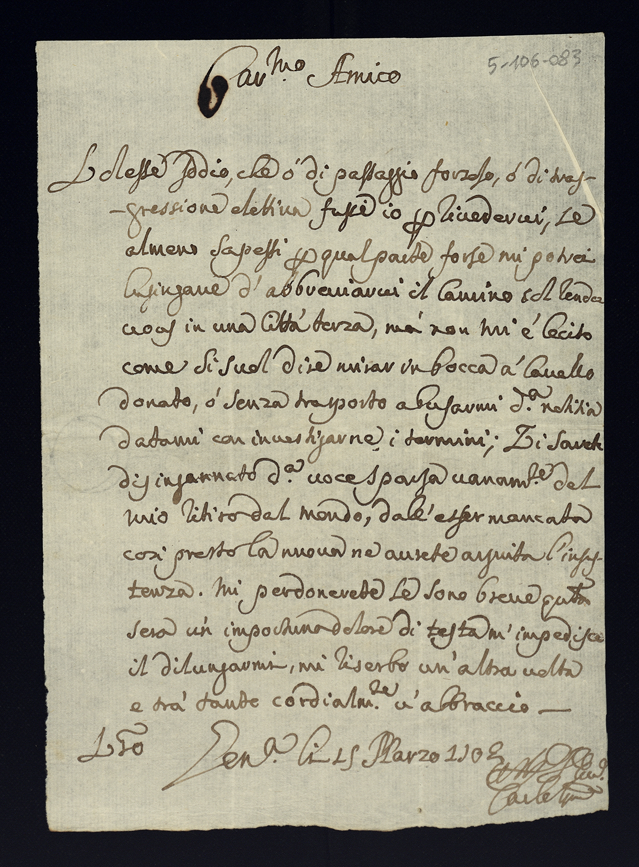 5-106-083
Car.mo Amico
Volesse Iddio, che ò di passaggio forzoso, ò di tras-
-gressione elettiva fussi io p rivedervi, se
almeno sapessi p qual parte forse mi potrei
lusingare d'abbreviarvi il camino
in una Città terza, má non mi é lecito
come si suol dire mirar in bocca á Cavallo
donato, ó senza trasporto abusarmi d.a notitia
datami con investigarne i termini; Vi sarete
disingannato d.a voce sparsa vanam.te del
mio ritiro dal mondo, dal'esser mancata
cosi presto la nuova ne avrete arguita l'insus-
tenza. Mi perdonerete se sono breve
sera un impochino dolore di testa m'impedisce
il dilungarmi, mi riserbo un'altra volta
e trá tante cordialm.te v'abbraccio —
Li 15 Marzo